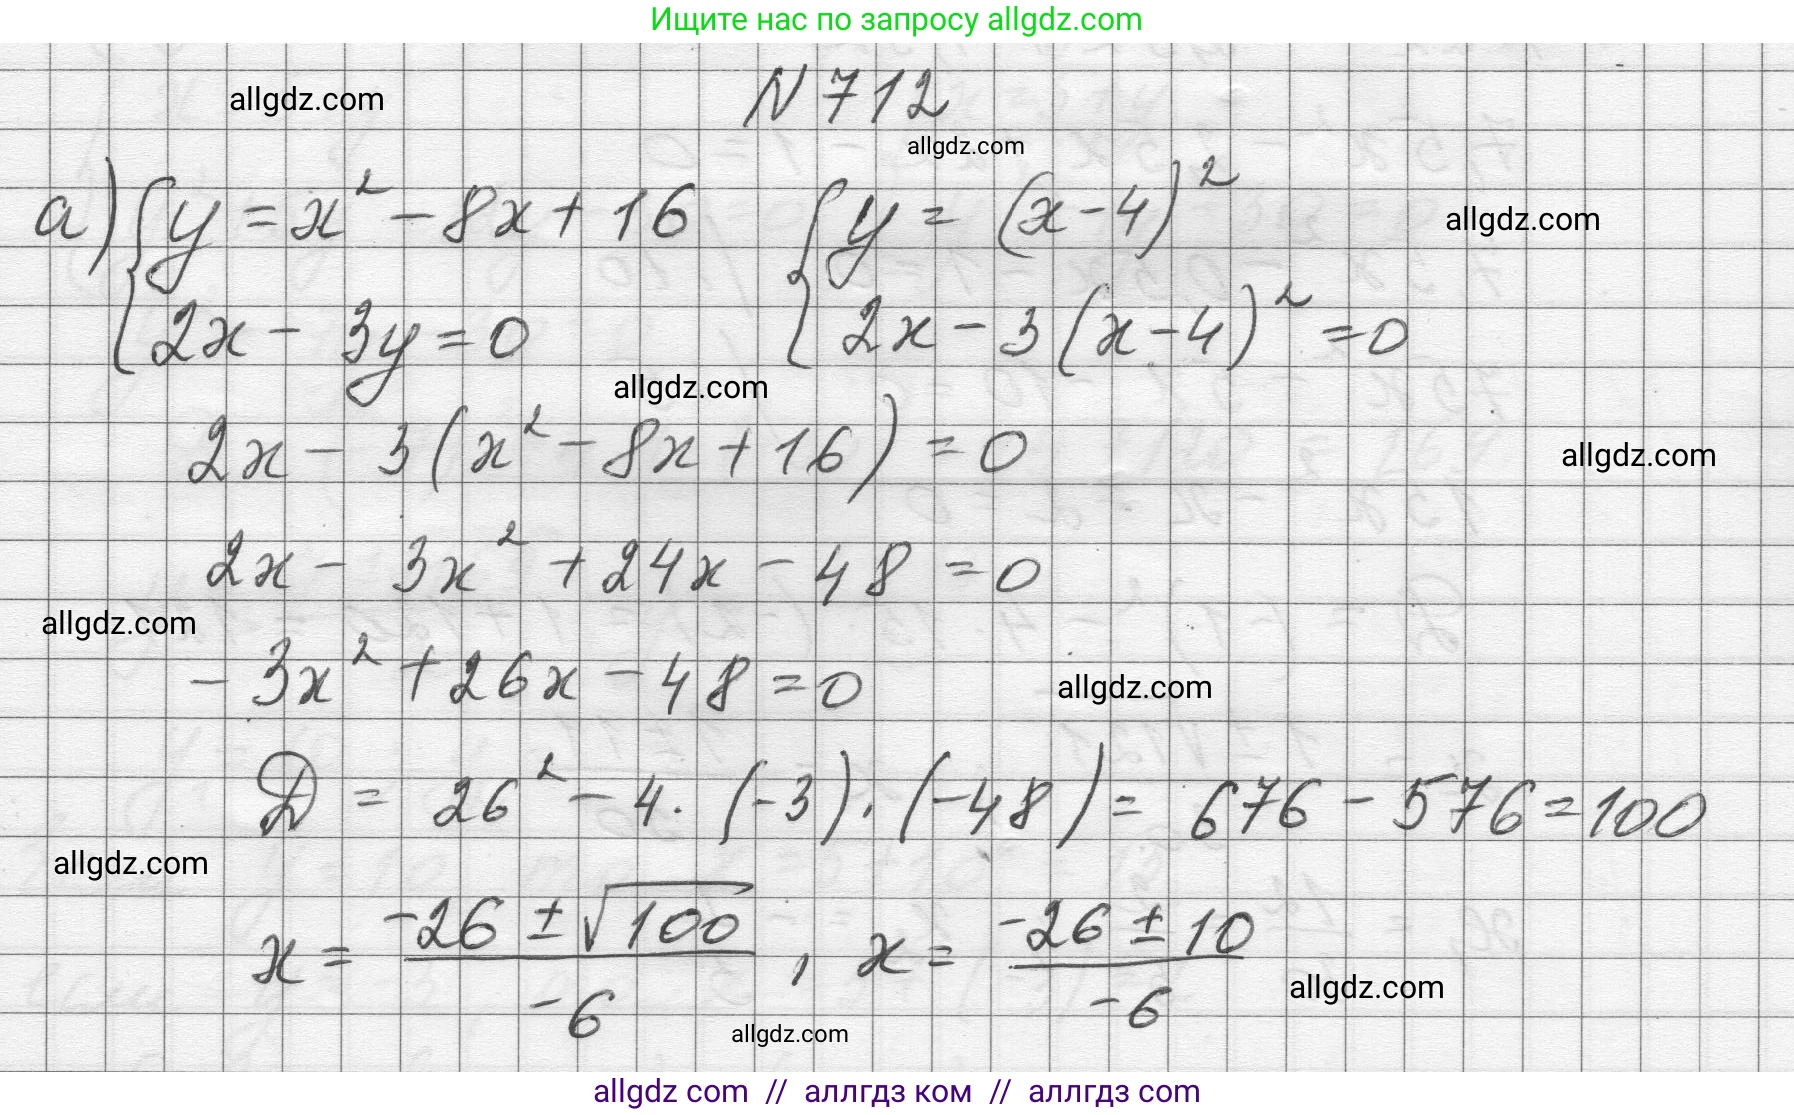 Ищите нас по запросу allgdz.com
N 712
allgdz.com
allgdz.com
а) { y = x² - 8x + 16 { y = (x - 4)²
allgdz.com
2x - 3y = 0 2x - 3(x - 4)² = 0
allgdz.com
2x - 3(x² - 8x + 16) = 0
allgdz.com
2x - 3x² + 24x - 48 = 0
allgdz.com
- 3x² + 26x - 48 = 0
allgdz.com
D = 26² - 4 · (-3) · (-48) = 676 - 576 = 100
allgdz.com
x = (-26 ± √100) / -6 , x = (-26 ± 10) / -6
allgdz.com
allgdz.com
allgdz com // аллгдз ком // аллгдз com